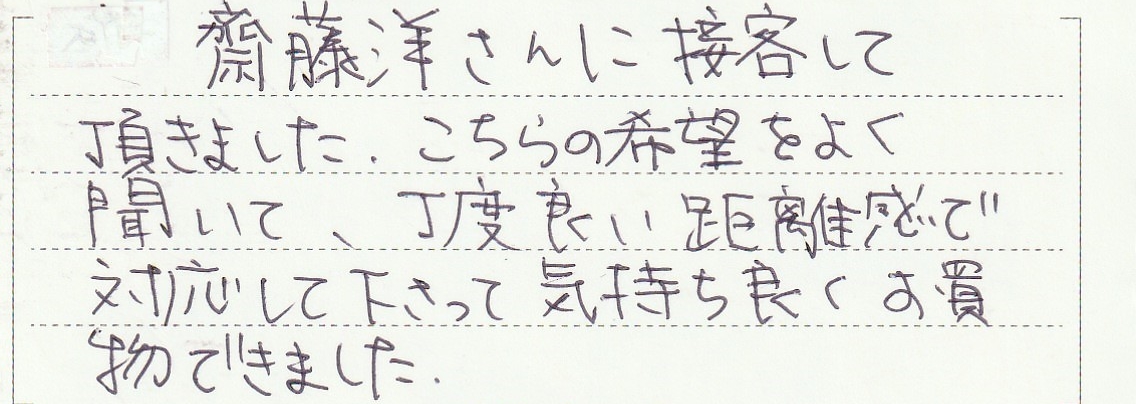 齋藤洋さんに接客して
頂きました.こちらの希望をよく
聞いて、丁度良い距離感で
対応して下さって気持ち良くお買
物できました.